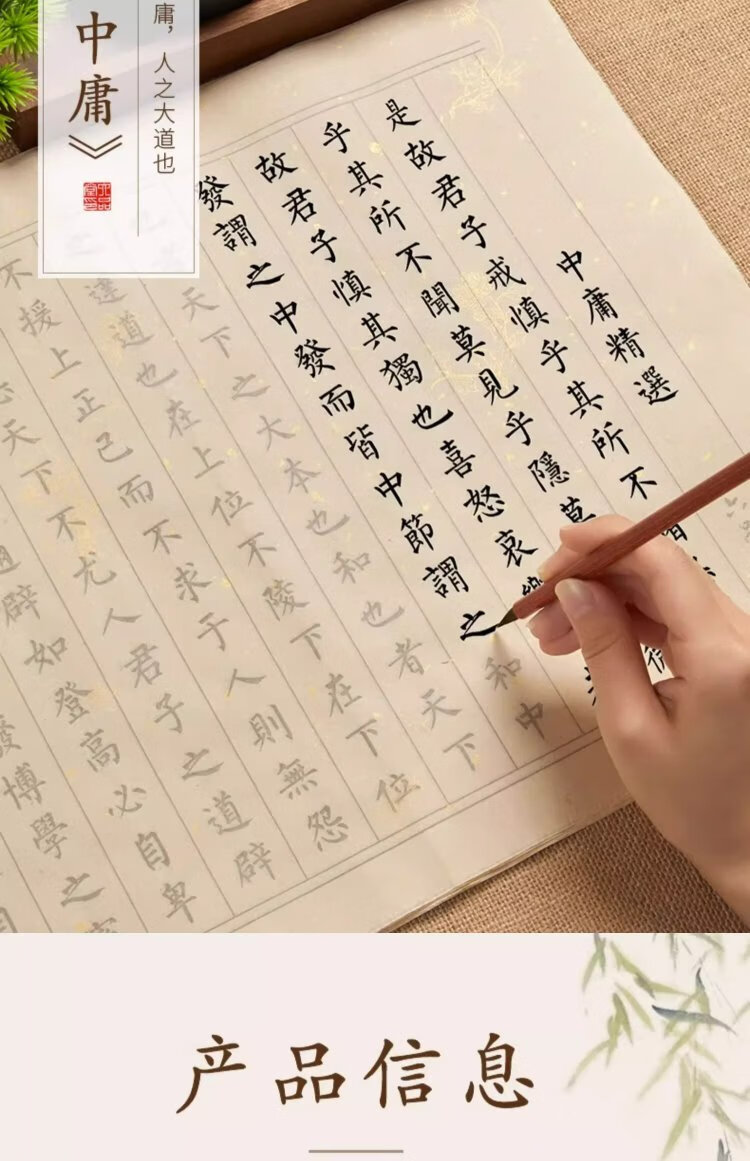 中庸》
庸，人之大道也
中庸精選
是故君子戒慎乎其所不
乎其所不聞莫見乎隱莫
故君子慎其獨也喜怒哀
發謂之中發而皆中節謂之和中
天下之大本也和也者天下
達道也在上位不陵下在下位
不援上正己而不求于人則無怨
天下不尤人君子之道辟
辟如登高必自卑
博學之
产品信息